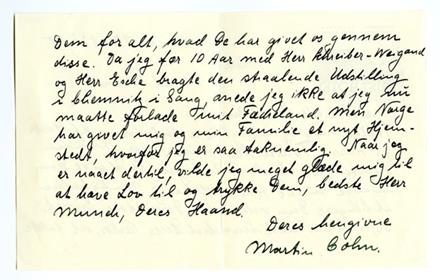 Dem for alt, hvad De har givet os gennem
disse. Da jeg for 10 Aar med Herr Schreiber-Weigand
og Herr Esche bragte den straalende Udstilling
i Chemnitz i Gang, anede jeg ikke at jeg nu
maatte forlade mit Fædreland. Men Norge
har givet mig og min Familie et nyt Hjem-
stedt, hvorfor jeg er saa taknemlig. Naar jeg
er naaet dertil, vilde jeg meget glæde mig til
at have Lov til og trykke Dem, bedste Herr
Munch, Deres Haand.
Deres hengivne
Martin Cohn.